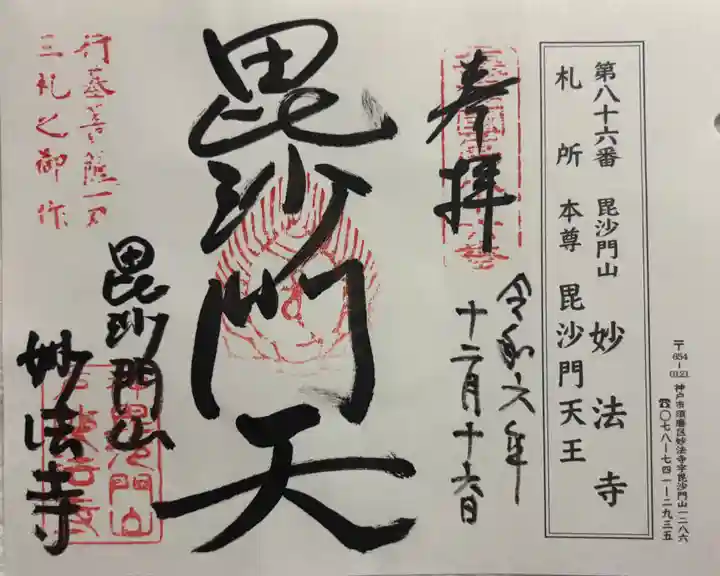 〒654-0121 神戸市須磨区妙法寺字毘沙門山一二八六
☎〇七八-七四一-二九三五
第八十六番 毘沙門山 妙法寺
札所本尊 毘沙門天王
奉拝
令和六年
十二月十六日
毘沙門天
毘沙門山
妙法寺
行基菩薩一刀
三礼之御作